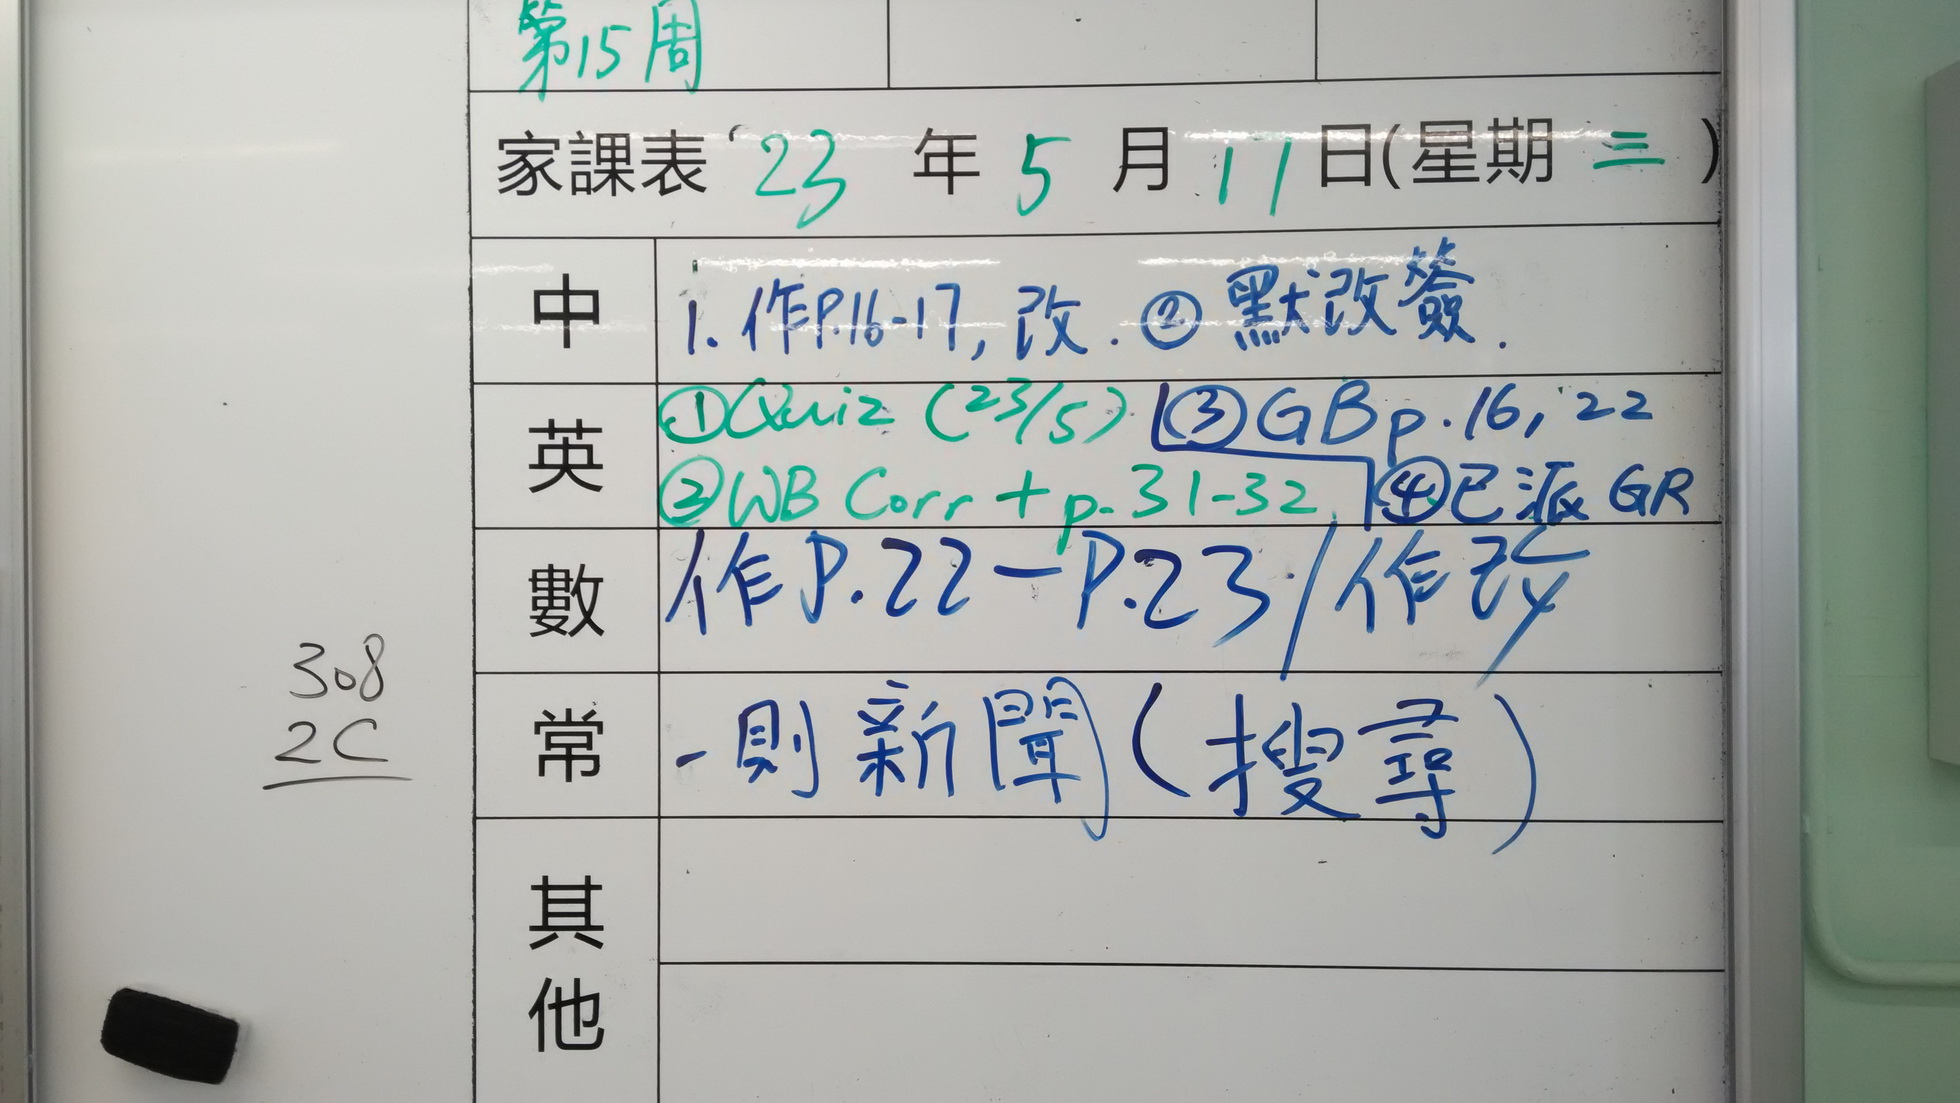 第15周
家課表 '23 年 5 月 17 日(星期 三 )
中 1. 作P.16-17, 改. ② 默改簽.
英 ① Quiz (23/5) ③ GB p. 16, 22
② WB Corr + p. 31-32 ④ 已派 GR
數 作P.22-P.23/作改
常 一則新聞(搜尋)
308
2C
其他